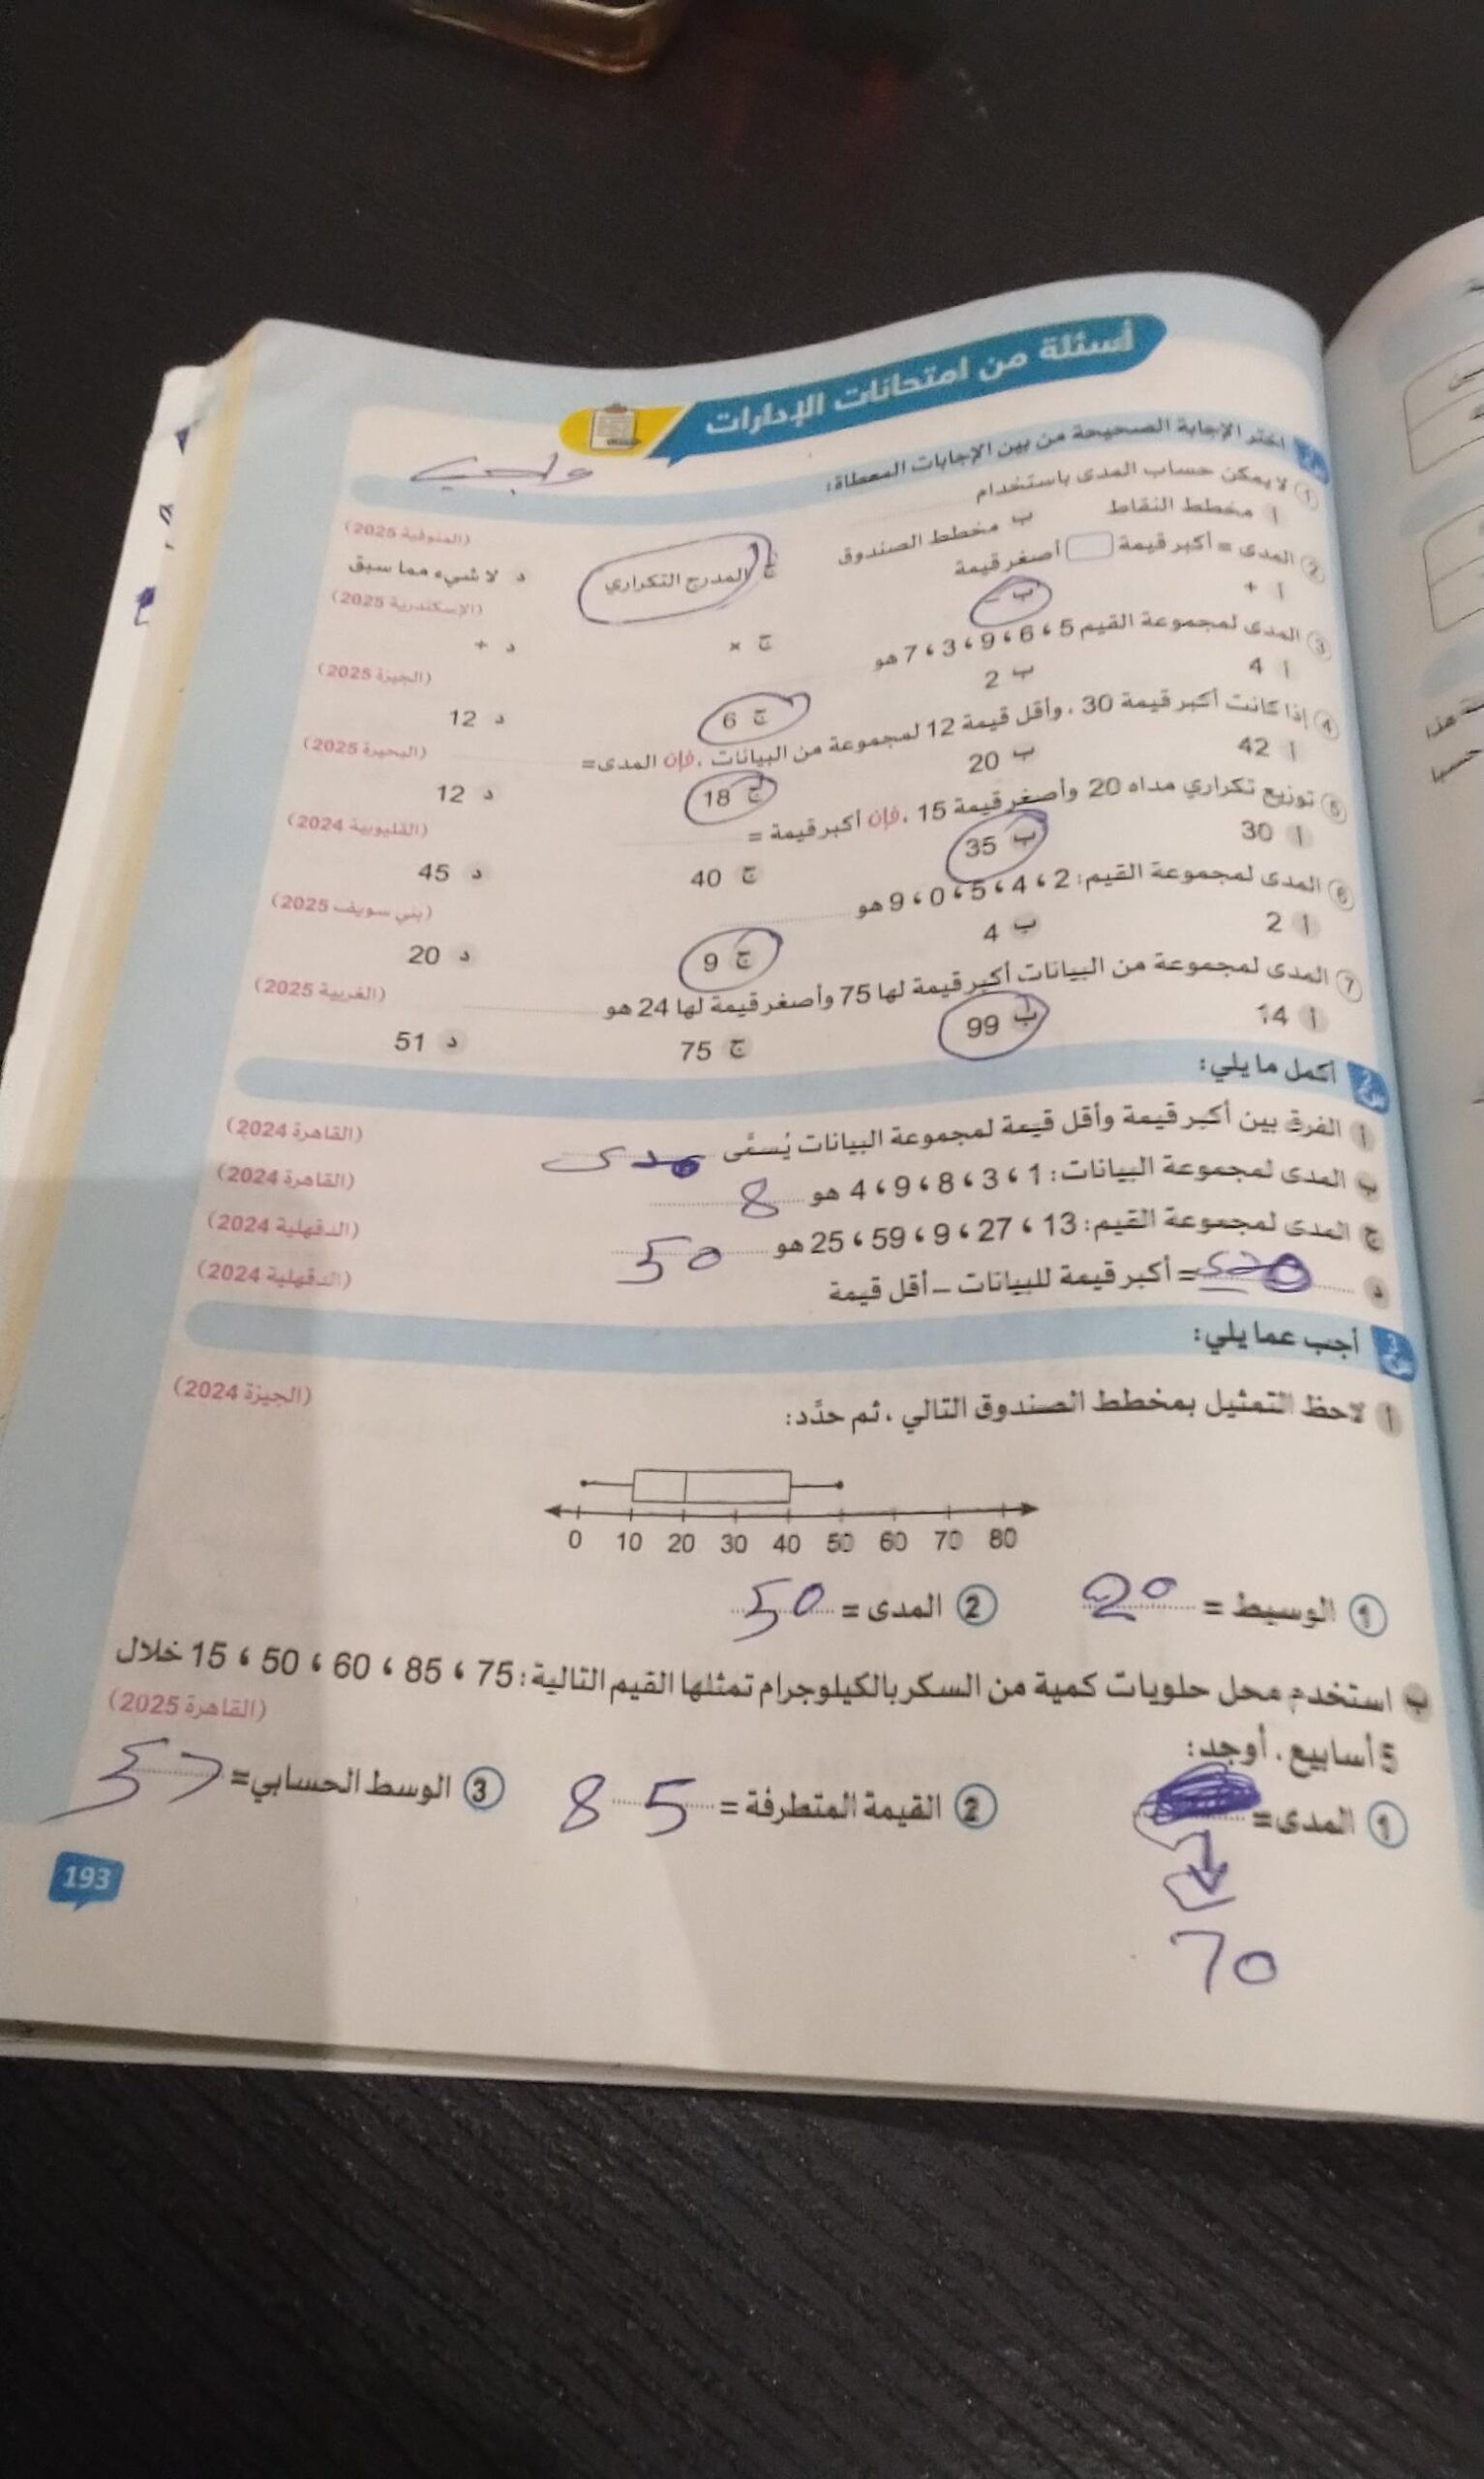 أسئلة من امتحانات الإدارات
واجب
اختر الإجابة الصحيحة من بين الإجابات المعطاة:
1 لا يمكن حساب المدى باستخدام (المنوفية 2025)
أ مخطط النقاط ب مخطط الصندوق ج المدرج التكراري د لا شيء مما سبق
2 المدى = أكبر قيمة □ أصغر قيمة (الإسكندرية 2025)
أ + ب - ج × د ÷
3 المدى لمجموعة القيم 5 ، 6 ، 9 ، 3 ، 7 هو (الجيزة 2025)
أ 4 ب 2 ج 6 د 12
4 إذا كانت أكبر قيمة 30 ، وأقل قيمة 12 لمجموعة من البيانات ، فإن المدى = (البحيرة 2025)
أ 42 ب 20 ج 18 د 12
5 توزيع تكراري مداه 20 وأصغر قيمة 15 ، فإن أكبر قيمة = (القليوبية 2024)
أ 30 ب 35 ج 40 د 45
6 المدى لمجموعة القيم : 2 ، 4 ، 5 ، 0 ، 9 هو (بني سويف 2025)
أ 2 ب 4 ج 9 د 20
7 المدى لمجموعة من البيانات أكبر قيمة لها 75 وأصغر قيمة لها 24 هو (الغربية 2025)
أ 14 ب 99 ج 75 د 51
س2 أكمل ما يلي:
أ الفرق بين أكبر قيمة وأقل قيمة لمجموعة البيانات يُسمَّى مدى (القاهرة 2024)
ب المدى لمجموعة البيانات : 1 ، 3 ، 8 ، 9 ، 4 هو 8 (القاهرة 2024)
ج المدى لمجموعة القيم : 13 ، 27 ، 9 ، 59 ، 25 هو 50 (الدقهلية 2024)
د مدى = أكبر قيمة للبيانات – أقل قيمة (الدقهلية 2024)
س3 أجب عما يلي:
أ لاحظ التمثيل بمخطط الصندوق التالي ، ثم حدِّد: (الجيزة 2024)
0 10 20 30 40 50 60 70 80
1 الوسيط = 20 2 المدى = 50
ب استخدم محل حلويات كمية من السكر بالكيلوجرام تمثلها القيم التالية : 75 ، 85 ، 60 ، 50 ، 15 خلال
5 أسابيع . أوجد: (القاهرة 2025)
1 المدى = 2 القيمة المتطرفة = 85 3 الوسط الحسابي = 57
70
193